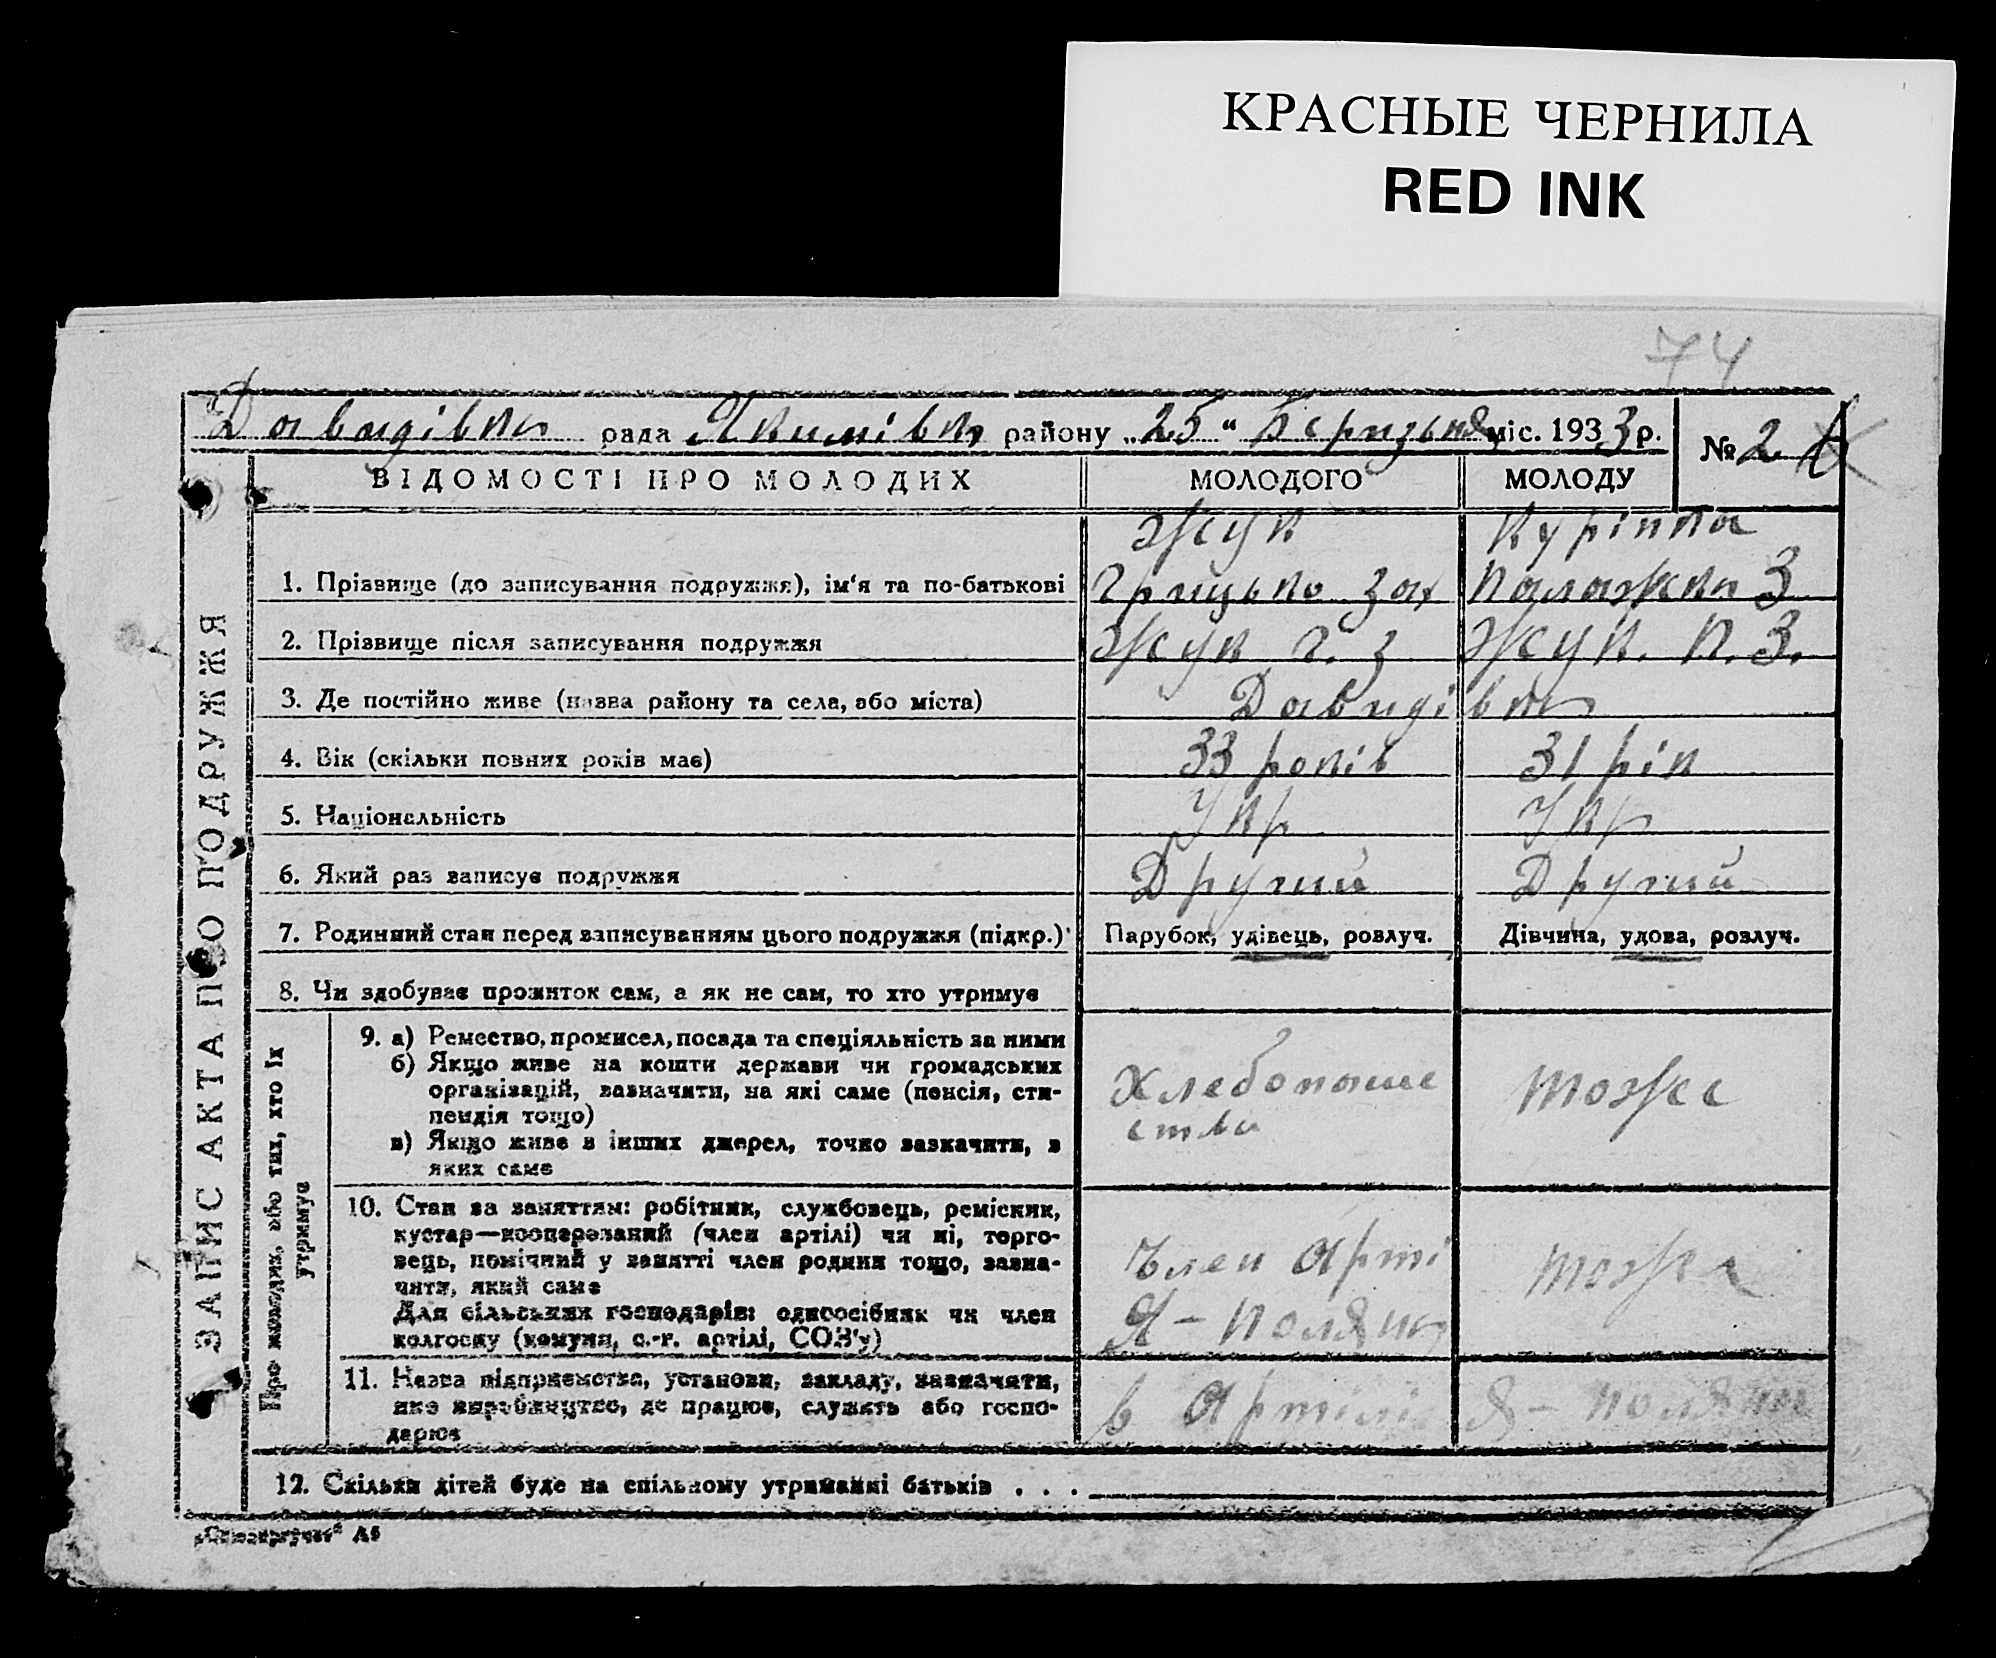 КРАСНЫЕ ЧЕРНИЛА
RED INK
74
Давидівка рада Якимівка району „25“ Березня міс. 1933 р.
№ 2
ВІДОМОСТІ ПРО МОЛОДИХ МОЛОДОГО МОЛОДУ
ЗАПИС АКТА ПРО ПОДРУЖЖЯ
Жук Курінна
1. Прізвище (до записування подружжя), ім'я та по-батькові Грицько Зах Палажка З
2. Прізвище після записування подружжя Жук Г. З Жук. П. З.
3. Де постійно живе (назва району та села, або міста) Давидівка
4. Вік (скільки повних років має) 33 років 31 рік
5. Національність Укр Укр
6. Який раз записує подружжя Другий Другий
7. Родинний стан перед записуванням цього подружжя (підкр.) Парубок, удівець, розлуч. Дівчина, удова, розлуч.
8. Чи здобуває прожиток сам, а як не сам, то хто утримує
Про молодих, або тих, хто їх
утримує
9. а) Ремество, промисел, посада та спеціяльність за ними
б) Якщо живе на кошти держави чи громадських
організацій, зазначити, на які саме (пенсія, сти-
пендія тощо)
в) Якщо живе з інших джерел, точно зазначити, з
яких саме
Хлебопаше
ства
тоже
10. Стан за заняттям: робітник, службовець, ремісник,
кустар—кооперований (член артілі) чи ні, торго-
вець, помічний у занятті член родини тощо, зазна-
чити, який саме
Для сільських господарів: одноосібник чи член
колгоспу (комуни, с.-г. артілі, СОЗ'у)
Член Арті
Я-Поляна
тоже
11. Назва підприємства, установи, закладу, зазначити,
яке виробництво, де працює, служить або госпо-
дарює
в Артілі Я-Поляна
12. Скільки дітей буде на спільному утриманні батьків . . .